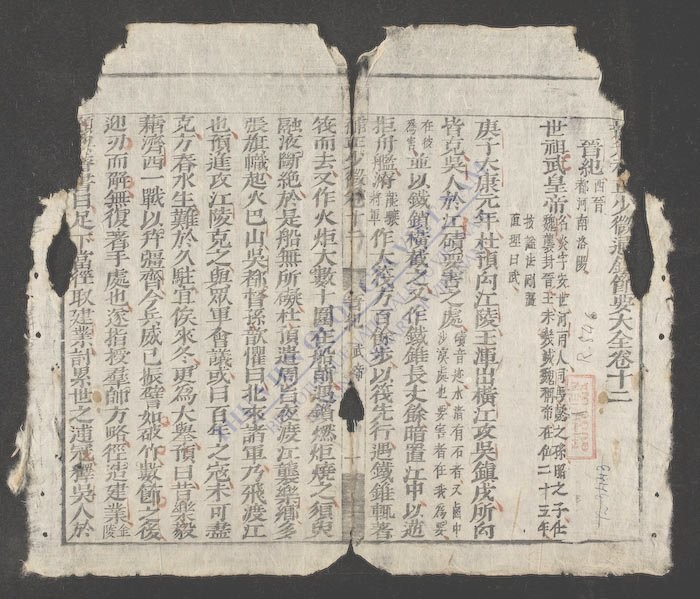 少微通鑑節要大全卷十二
晉紀 西晉都河南洛陽
世祖武皇帝 名炎字安世河內人司馬懿之孫昭之子仕魏襲封晉王未幾篡魏稱帝在位二十五年
按謚法剛彊直理曰武
庚子太康元年杜預向江陵王渾出橫江攻吳鎮戍所向
皆克吳人於江磧要害之處 磧音迹水渚有石者又虜中沙漠處也要害者在我為要
在彼為害 並以鐵鎖橫截之又作鐵錐長丈餘暗置江中以逆
拒舟艦濬 龍驤將軍 作大筏方百餘步以筏先行遇鐵錐輒著
筏而去又作火炬大數十圍在船前遇鎖燃炬燒之須臾
融液斷絕於是船無所礙杜預遣周旨夜渡江襲樂鄉多
張旗幟起火巴山吳都督孫歆懼曰北來諸軍乃飛渡江
也預進攻江陵克之與眾軍會議或曰百年之寇未可盡
克方春水生難於久駐宜俟來冬更為大舉預曰昔樂毅
藉濟西一戰以幷彊齊今兵威已振譬如破竹數節之後
迎刃而解無復著手處也遂指授群帥方略徑造建業 金陵
預與濬書曰足下當徑取建業討累世之逋寇釋吳人於
晉紀 武帝
R.546